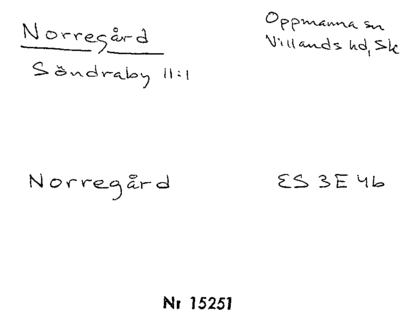 Norregård
Oppmanna sn
Villands hd, Sk
Söndraby 11:1
Norregård
ES 3E 4b
Nr 15251